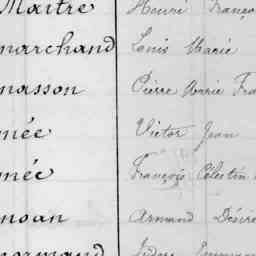 Maitre Henri Franço
marchand Louis Marie
masson Pierre Marie Fra
mée Victor Jean
mée François Célestin
moan Armand Désiré
normand